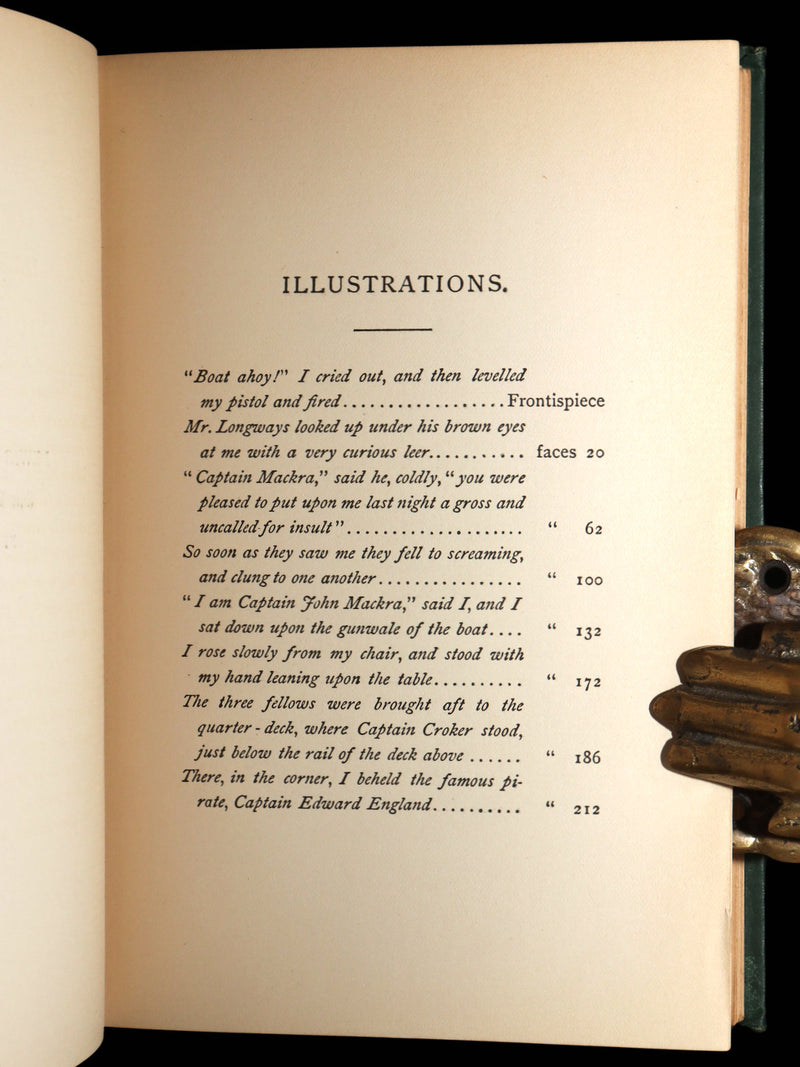 ILLUSTRATIONS.
"Boat ahoy!" I cried out, and then levelled
my pistol and fired..................Frontispiece
Mr. Longways looked up under his brown eyes
at me with a very curious leer........... faces 20
"Captain Mackra," said he, coldly, "you were
pleased to put upon me last night a gross and
uncalled-for insult".................... " 62
So soon as they saw me they fell to screaming,
and clung to one another................ " 100
"I am Captain John Mackra," said I, and I
sat down upon the gunwale of the boat.... " 132
I rose slowly from my chair, and stood with
my hand leaning upon the table.......... " 172
The three fellows were brought aft to the
quarter-deck, where Captain Croker stood,
just below the rail of the deck above ...... " 186
There, in the corner, I beheld the famous pi-
rate, Captain Edward England.......... " 212